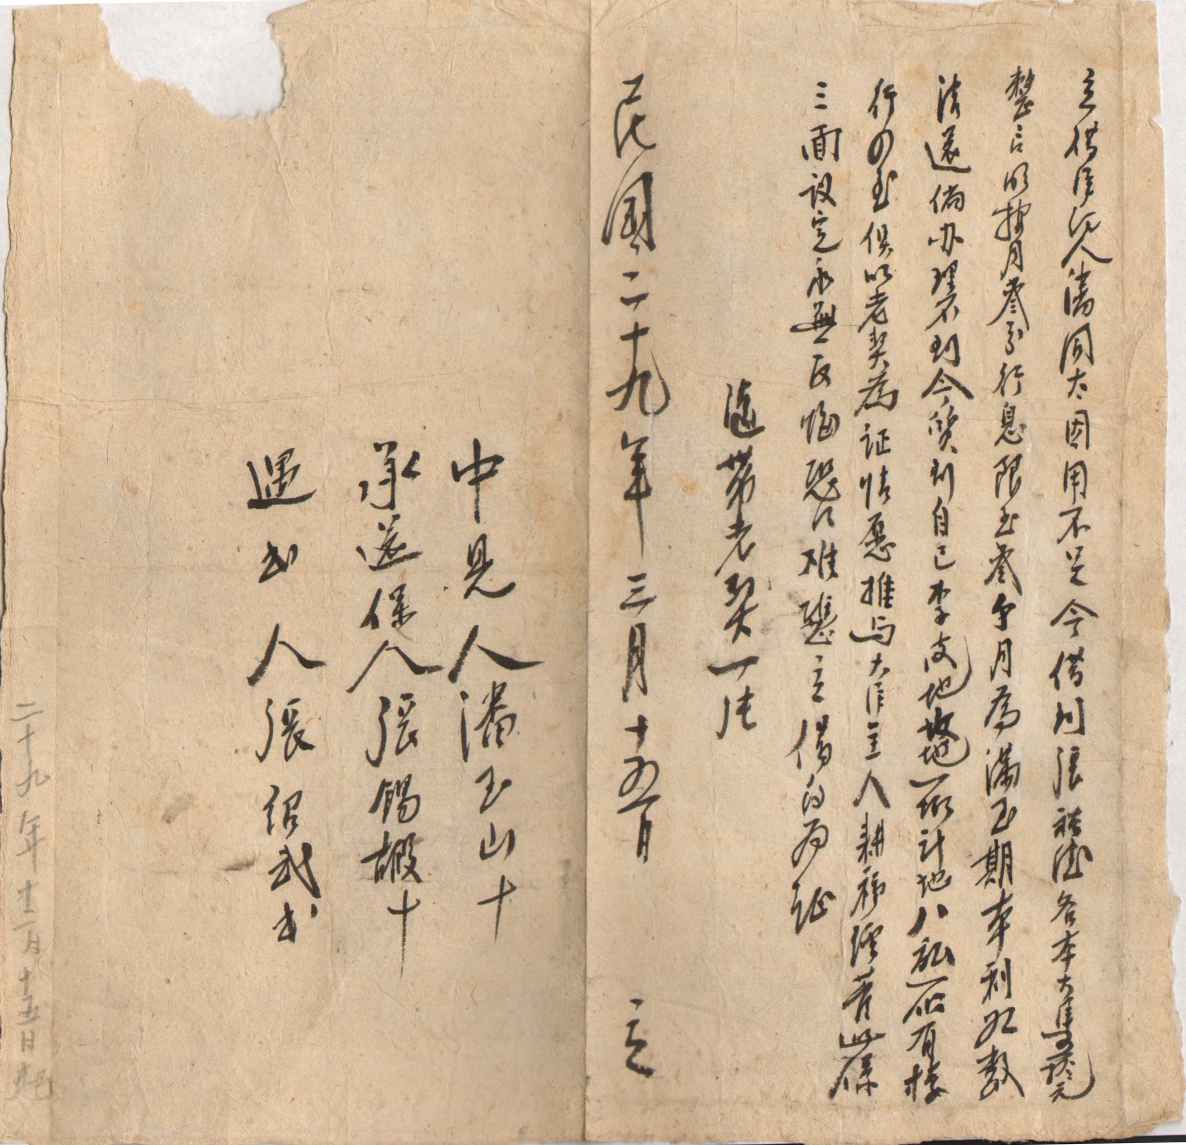 立借洋約人潘同太因用不足今借到張裕德名本大洋元
整言明按月叁分行息限至叁个月為滿至期本利如数
清還倘办理不到今質到自己李皮地坡地一段計地八畝所有楼
行四至俱以老契為証情愿推与大洋主人耕種經營此係
三面议定永無反悔恐口难憑立借約为証
隨带老契一张
民國二十九年三月十五日 立
中見人潘玉山十
承還保人張錫嘏十
遇书人張紹武书
二十九年十二月十五日